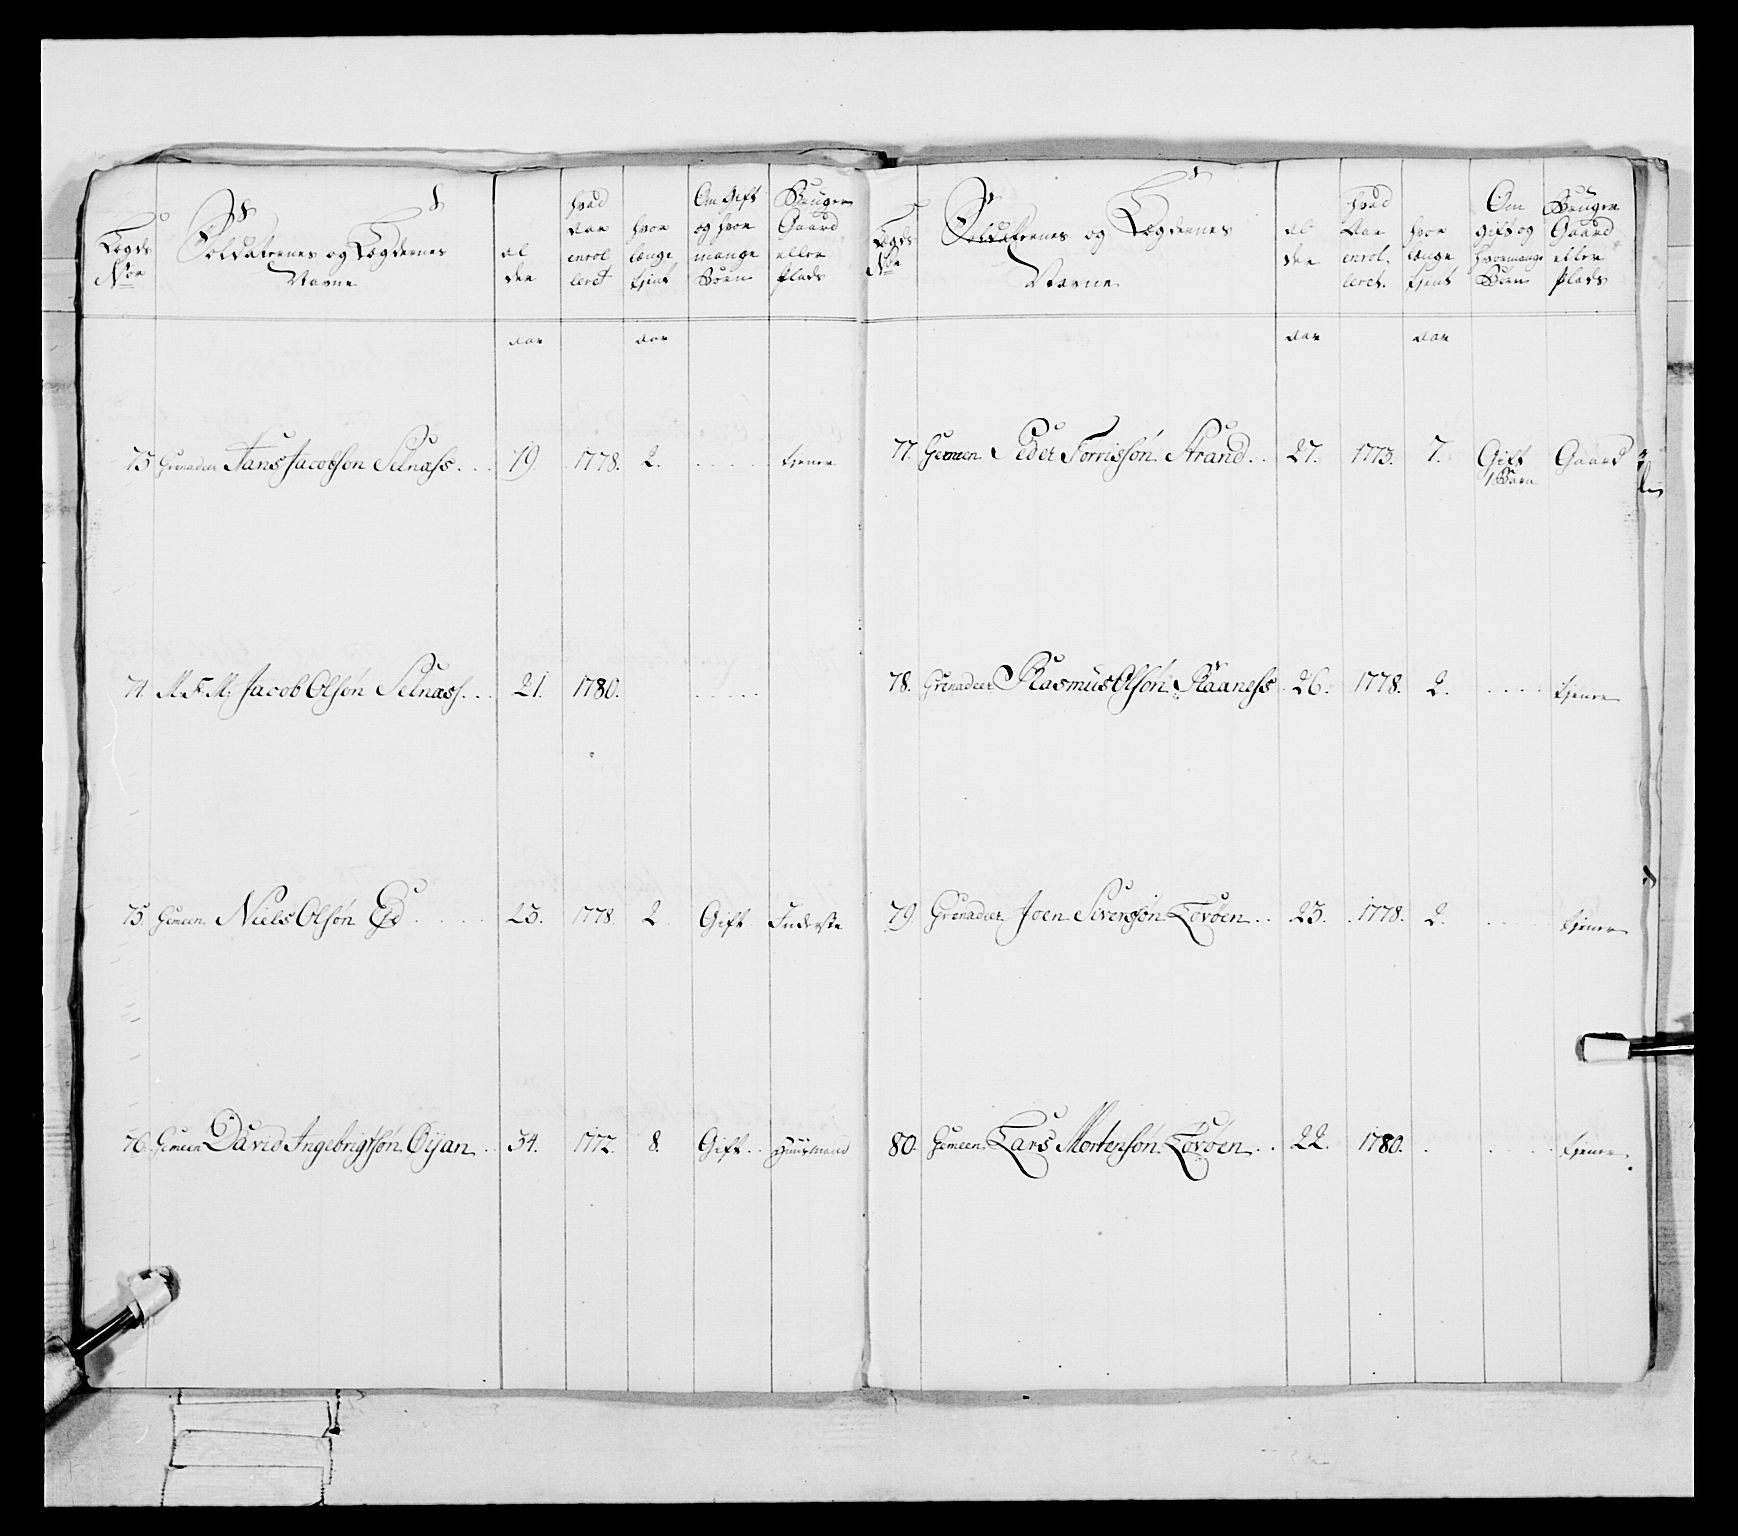 Lægds
No
Soldaternes og Lægdernes
Navne
al
der
hvad
Aar
enrol
leret
hvor
længe
tjent
Om Gift
og hvor
mange
Børn
Bruger
Gaard
eller
Plads
aar
aar
73 Grenadeer Hans Jacobsøn Selnæss. 19. 1778. 2. . . . . tjener
74. M. F. M. Jacob Olsøn Selnæss. . . 21. 1780. . . . .
75. Gemeen Niels Olsøn Eid . . . . 23. 1778. 2 Gift Inderste
76. Gemeen David Ingebrigtsøn Öijan . . 34. 1772. 8. Gift . . Huusmand
Lægds
No
Soldaternes og Lægdernes
Navne
al
der
hvad
Aar
enrol.
leret.
hvor
længe
tjent
Om
gift og
hvormange
Børn
Bruger
Gaard
eller
Plads
aar
aar
77. Gemeen Peder Torrissøn Strand . . 27. 1773. 7. Gift Gaard
1 Barn
78. Grenadeer Rasmus Olsøn Raaness 26. 1778. 2. . . . . tjener
79. Grenadeer Joen Sivertsøn Lovöen . . 23. 1778. 2. . . . . tjener
80. Gemeen Lars Mortensøn Lovöen . . 22. 1780. . . . . tjener